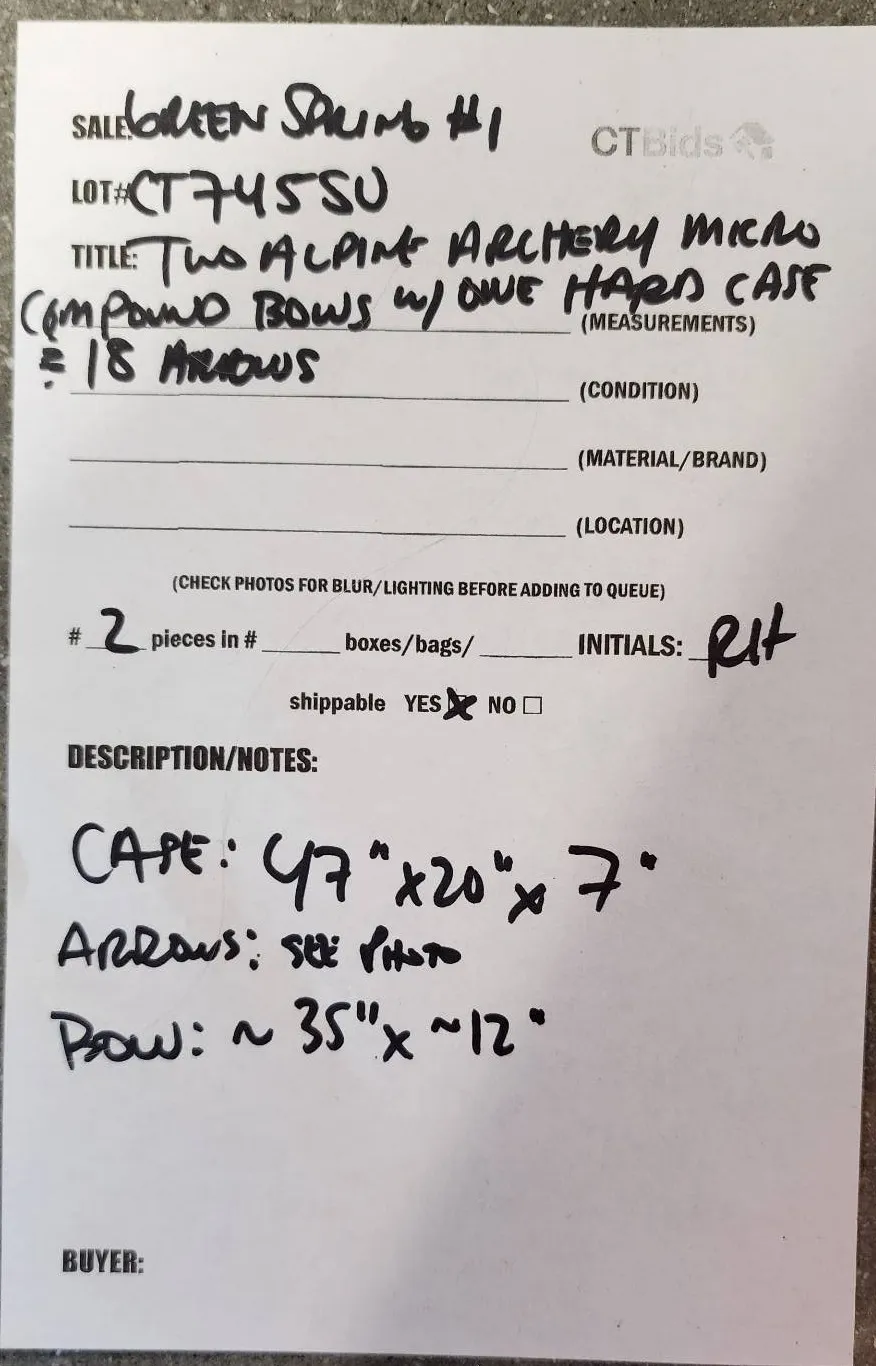 SALE: GREEN SPRING #1
CTBids
LOT# CT745SU
TITLE: TWO ALPINE ARCHERY MICRO
COMPOUND BOWS w/ ONE HARD CASE
(MEASUREMENTS)
& 18 ARROWS
(CONDITION)
(MATERIAL/BRAND)
(LOCATION)
(CHECK PHOTOS FOR BLUR/LIGHTING BEFORE ADDING TO QUEUE)
# 2 pieces in # ______ boxes/bags/ ______ INITIALS: RH
shippable YES ☒ NO ☐
DESCRIPTION/NOTES:
CASE: 47" x 20" x 7"
ARROWS: SEE PHOTO
BOW: ~ 35" x ~12"
BUYER: